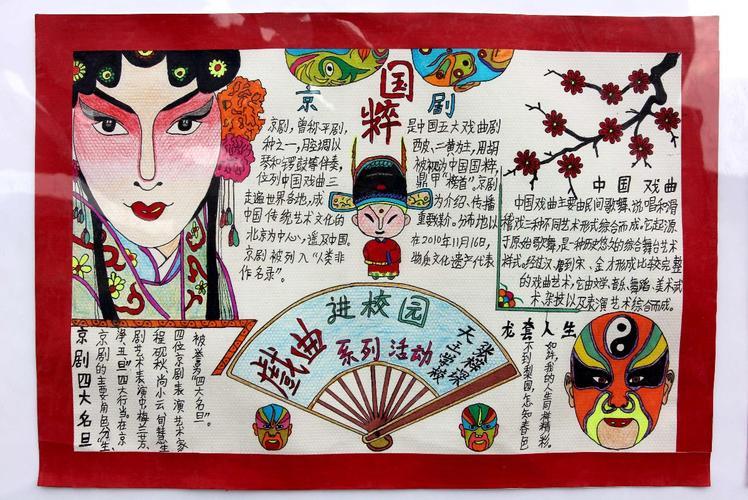 国粹
京剧
京剧，曾称平剧，
种之一，用腔调以
琴和锣鼓等伴奏，
位列中国戏曲三
走遍世界各地，成
中国传统艺术文化的
北京为中心，遍及中国
京剧被列入“人类非
作名录”。
是中国五大戏曲剧
西皮、二黄为主，用胡
被视为中国国粹，
鼎甲“榜首”。京剧
为介绍、传播
重要媒介。分布地以
在2010年11月16日，
物质文化遗产代表
中国戏曲
中国戏曲主要由民间歌舞、说唱和滑
稽戏三种不同艺术形式综合而成。它起源
于原始歌舞，是一种历史悠久的综合舞台艺术
样式。经过汉、唐到宋、金才形成比较完整
的戏曲艺术，它由文学、音乐、舞蹈、美术、武
术、杂技以及表演艺术综合而成。
戲曲
进校园
系列活动
天王学校
张梓琛
京剧四大名旦
京剧的主要角色分“生、
净、丑、旦”四大行当。在京
剧艺术表演中梅兰芳、
程砚秋、尚小云、荀慧生
四位京剧表演艺术家
被誉为“四大名旦”。
龙套人生
如戏，我的人生同样精彩。
不到梨园，怎知春色